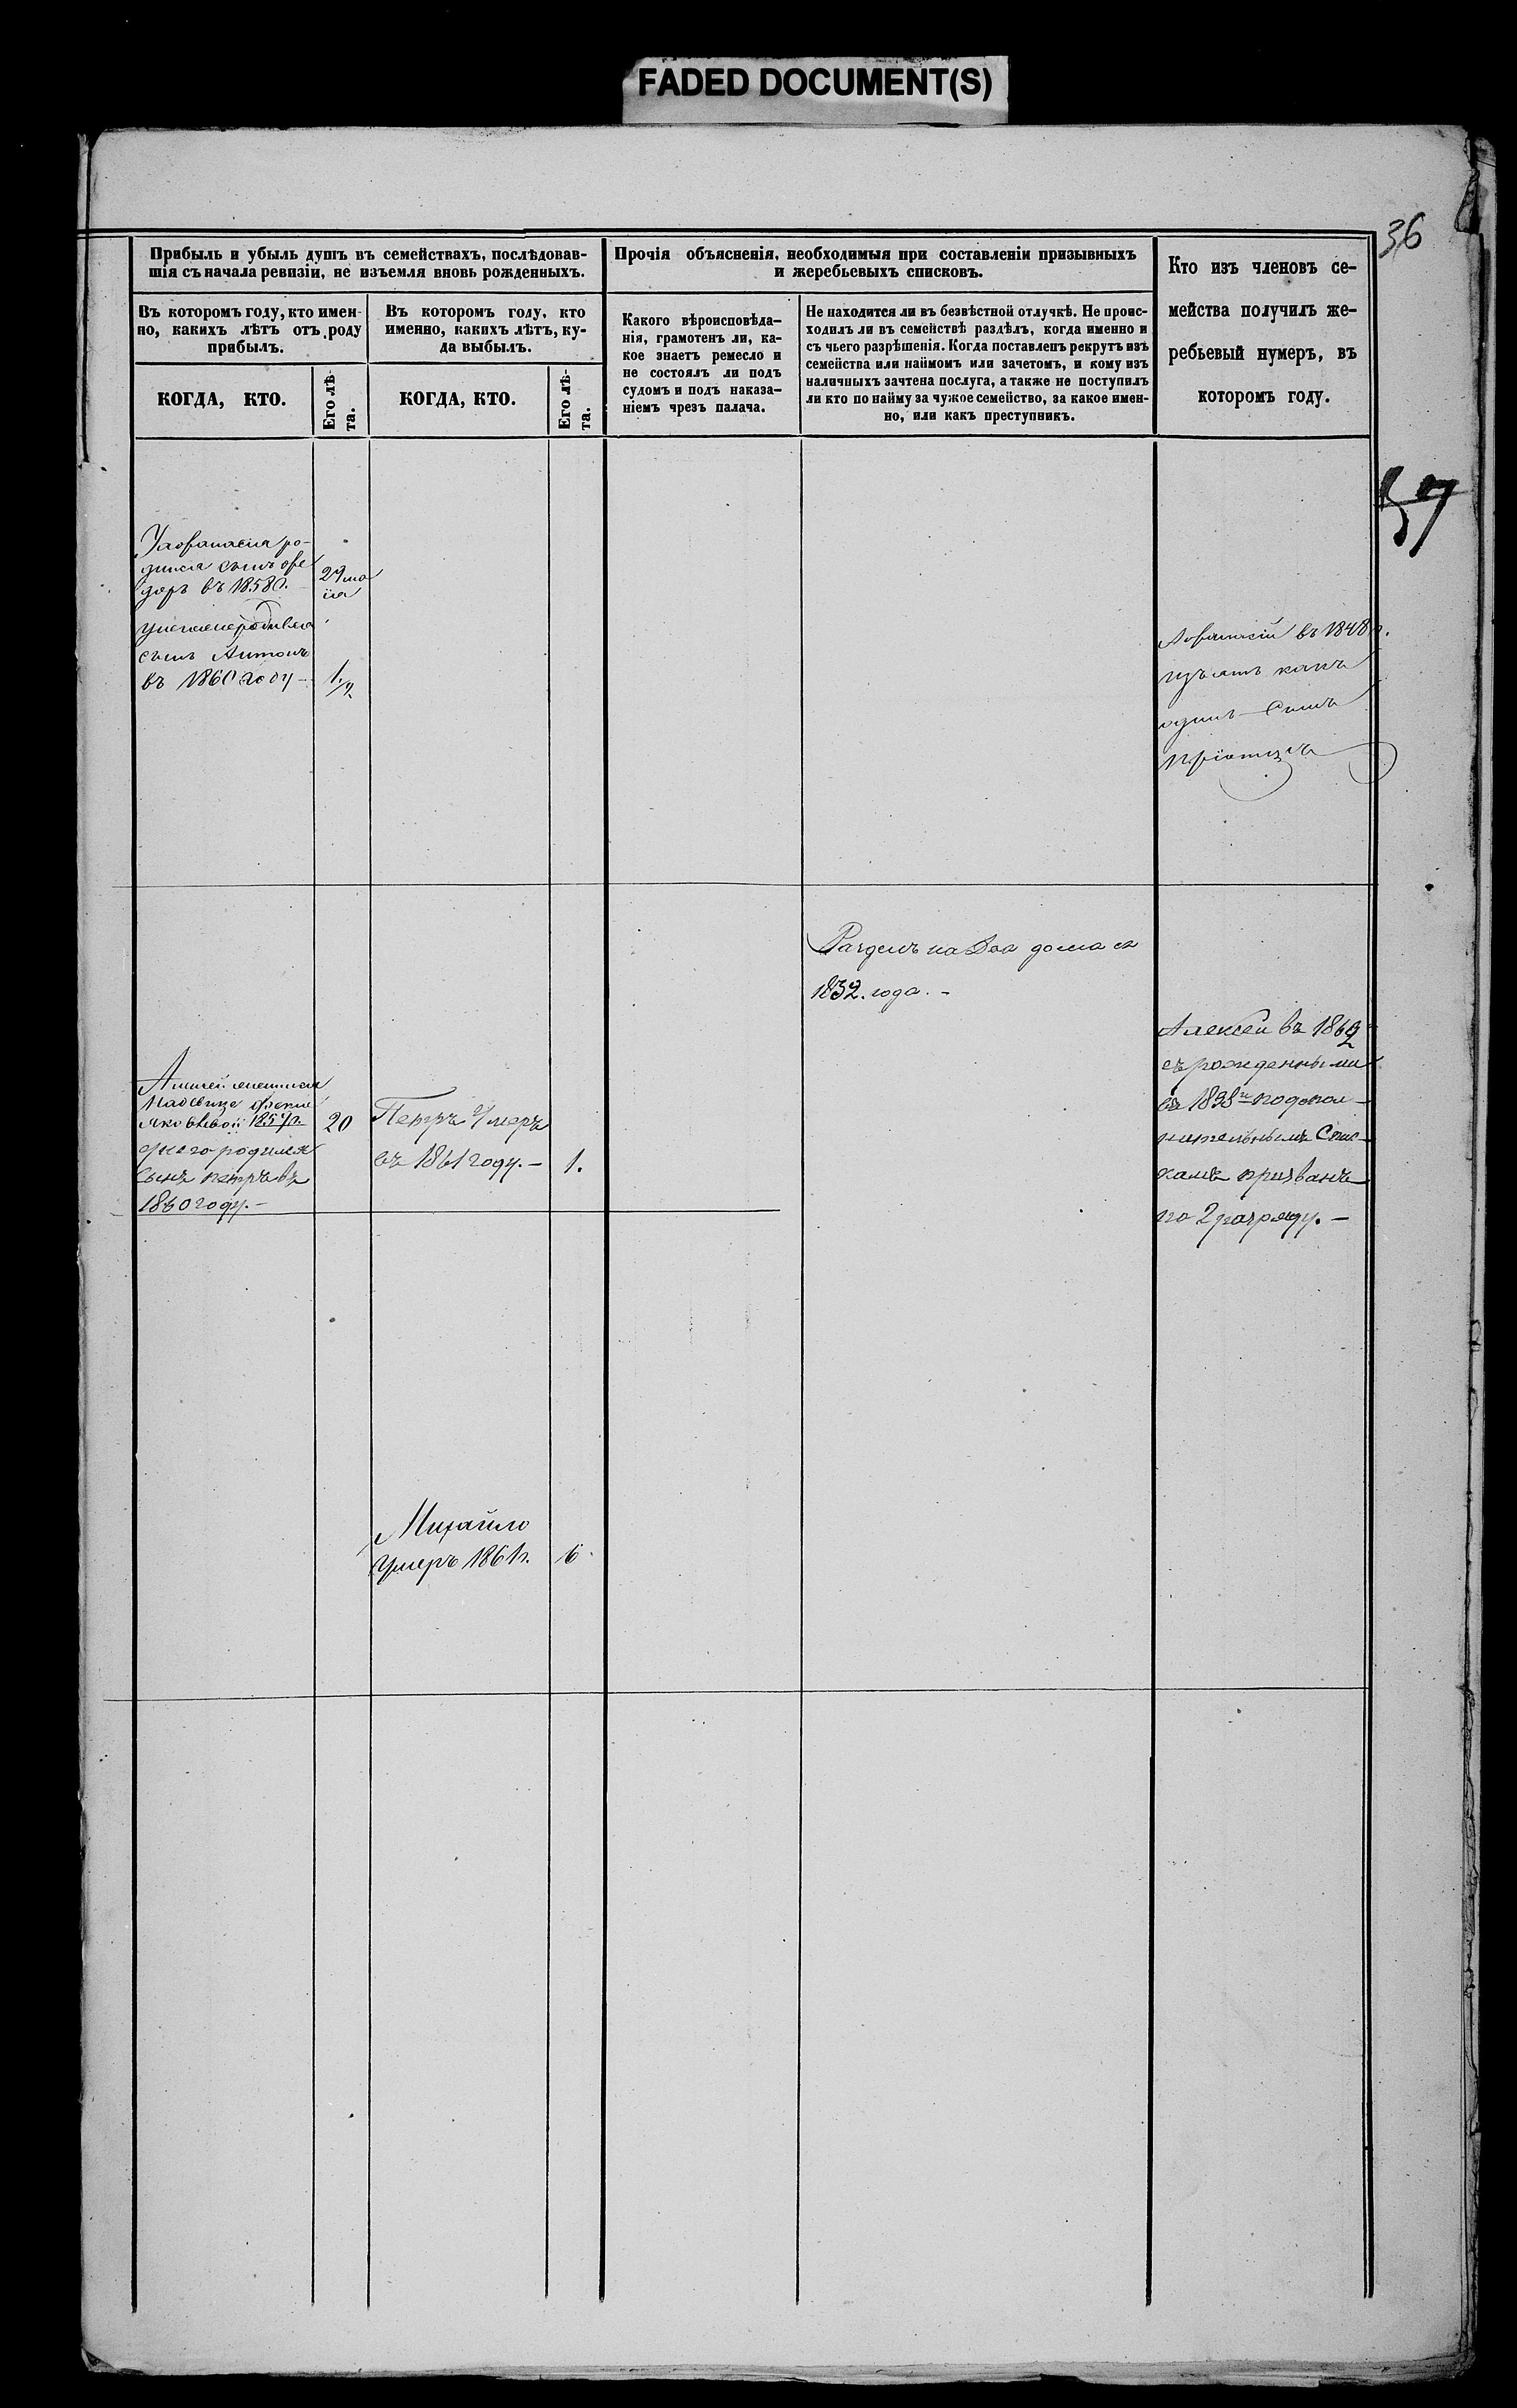 FADED DOCUMENT(S)
36
Прибыль и убыль душъ въ семействахъ, послѣдовав-
шія съ начала ревизіи, не изъемля вновь рожденныхъ.
Прочія объясненія, необходимыя при составленіи призывныхъ
и жеребьевыхъ списковъ.
Кто изъ членовъ се-
мейства получилъ же-
ребьевый нумеръ, въ
которомъ году.
Въ которомъ году, кто имен-
но, какихъ лѣтъ отъ роду
прибылъ.
Въ которомъ году, кто
именно, какихъ лѣтъ, ку-
да выбылъ.
Какого вѣроисповѣда-
нія, грамотенъ ли, ка-
кое знаетъ ремесло и
не состоялъ ли подъ
судомъ и подъ наказа-
ніемъ чрезъ палача.
Не находится ли въ безвѣстной отлучкѣ. Не проис-
ходилъ ли въ семействѣ раздѣлъ, когда именно и
съ чьего разрѣшенія. Когда поставленъ рекрутъ изъ
семейства или наймомъ или зачетомъ, и кому изъ
наличныхъ зачтена послуга, а также не поступилъ
ли кто по найму за чужое семейство, за какое имен-
но, или какъ преступникъ.
КОГДА, КТО.
Его лѣ-
та.
КОГДА, КТО.
Его лѣ-
та.
57
Уафанасиа ро-
дилса сынъ фе
доръ въ 1858г.
29 ма
iа
родивса
сынъ Антонъ
въ 1860 году -
1/2
Афанасiй въ 1848г.
изъятъ какъ
одинъ Сынъ
Разделъ на два дома съ
1832. года. -
Алексей въ 1862
съ рожденными
въ 1838м подопол-
нительнымъ Спис-
камъ призванъ
по 2 разряду. -
Яковлевой 1857г.
20
унего родился
Сынъ петръ въ
1860 году. -
Петръ Умеръ
въ 1861 году. -
1.
Михайло
Умеръ 1861г.
6